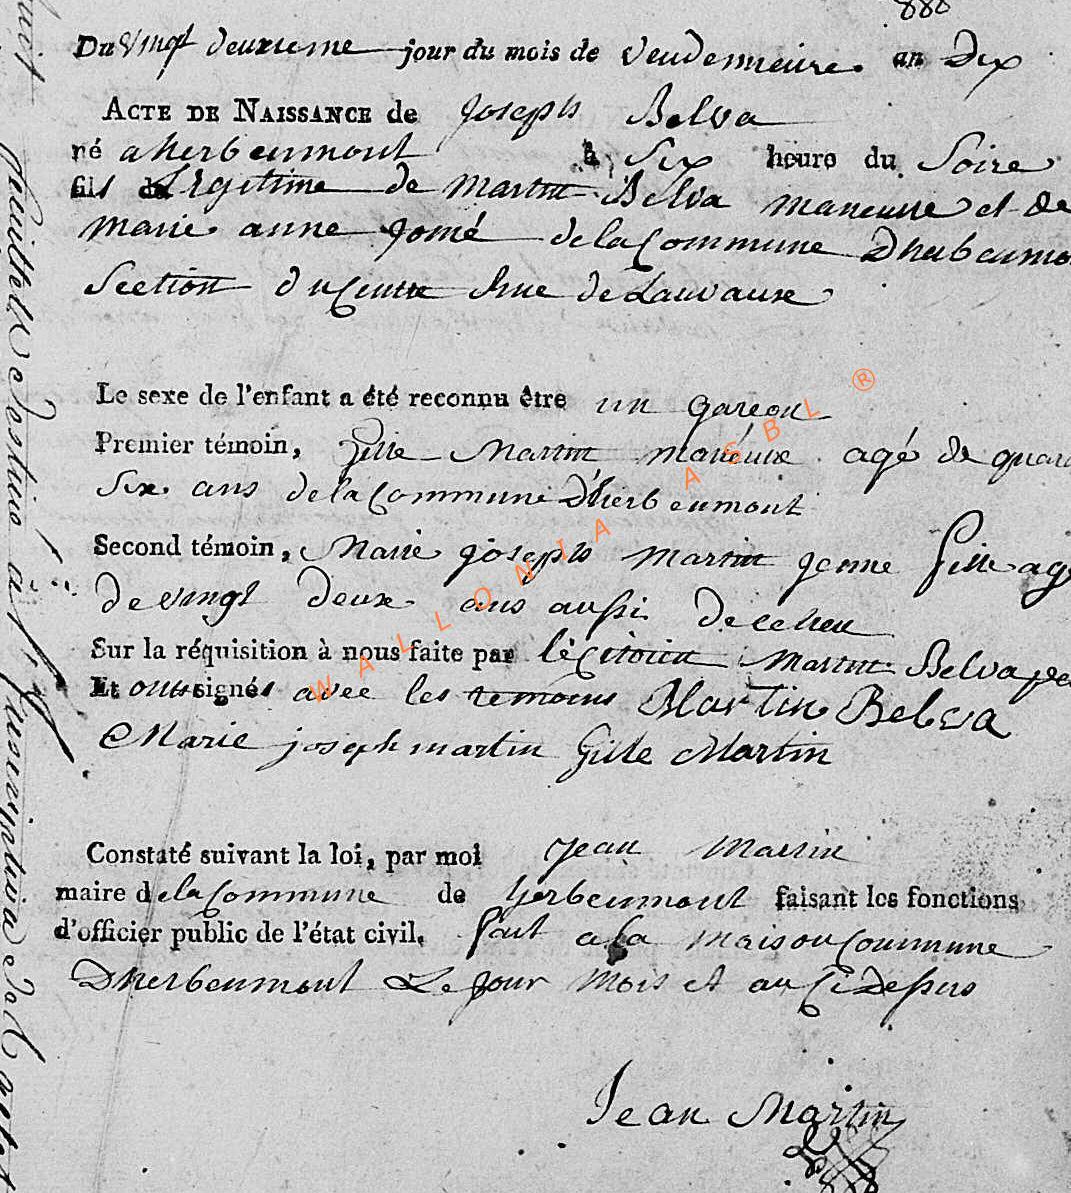 Du vingt deuxieme jour du mois de Vendemieire. an Dix
ACTE DE NAISSANCE de joseph Belva
né a herbeumont à Six heure du Soire
fils de Legitime de Martin Belva maneuvre et de
marie anne jomé de la Commune Dherbeumo
Section du Centre Rue de Lauvaux
Le sexe de l'enfant a été reconnu être un gareon
Premier témoin, Gille Martin manéuvre agé de quara
Six ans de la Commune D'herbeumont
Second témoin, Marie joseph martin jenne fille agé
de vingt deux ans aussi De ce lieu
Sur la réquisition à nous faite par le Citoien Martin Belva
Et ont signés avec les temoins Martin Belva
Marie joseph martin Gille Martin
Constaté suivant la loi, par moi jean Martin
maire de la Commune de herbeumont faisant les fonctions
d'officier public de l'état civil, fait a la maison Commune
Dherbeumont Le jour Mois et an Ci Dessus
Jean Martin
WALLONIA ASBL ®